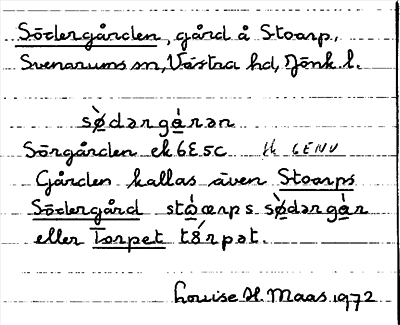 Södergården, gård å Stoarp,
Svenarums sn, Västra hd, Jönk. l.
sø̀dərgá̱rən
Sörgården ek 6E5c tk 6ENV
Gården kallas även Stoarps
Södergård stá̱œrps sø̀dərgá̱r
eller Torpet tʹ8rpət.
Louise H. Maas 1972